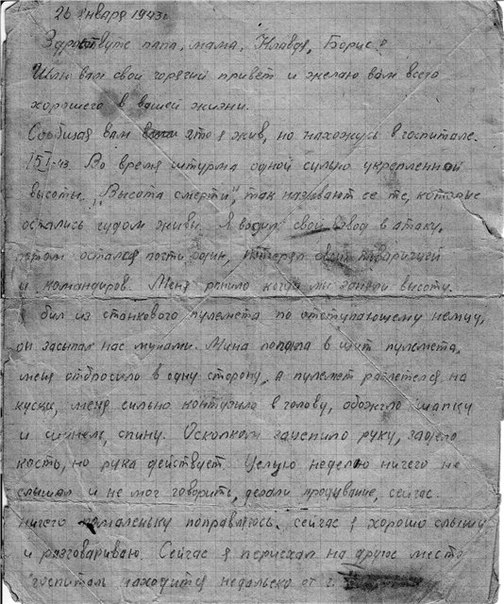 26 января 1943г.
Здравствуте папа, мама, Клавдя, Борис!
Шлю вам свой горячий привет и желаю вам всего
хорошего в вашей жизни.
Сообщая вам что я жив, но нахожусь в госпитале.
15 I-43. Во время штурма одной сильно укрепленной
высоты. „Высота смерти", так называют ее те, которые
остались чудом живы. Я водил свой взвод в атаку,
потом остался почти один, потерял своих товарищей
и командиров. Меня ранило когда мы заняли высоту.
Я бил из станкового пулемета по отступающему немцу,
он засыпал нас минами. Мина попала в щит пулемета,
меня отбросило в одну сторону, а пулемет разлетелся на
куски, меня сильно контузило в голову, обожгло шапку
и шинель, спину. Осколком зацепило руку, задело
кость, но рука действует. Целую неделю ничего не
слышал и не мог говорить, делали продувание, сейчас
ничего помаленьку поправляюсь. сейчас я хорошо слышу
и разговариваю. Сейчас я переехал на другое место
госпиталь находится недалеко от г.